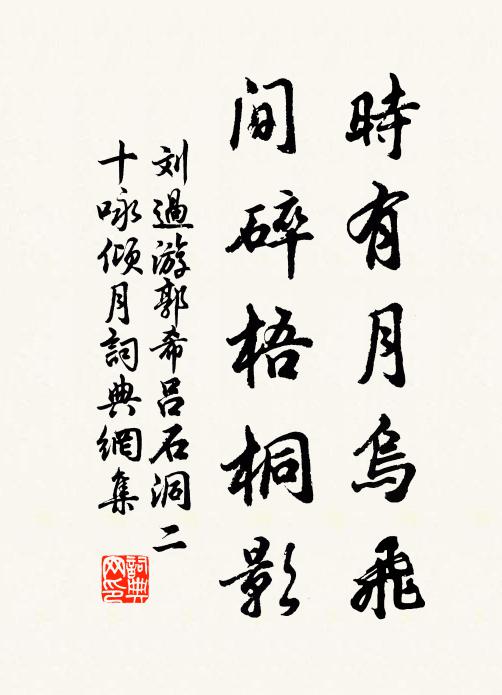 時有月烏飛
間碎梧桐影
刘過游郭希呂石洞二
十咏傾月詞典網集
詞典网印